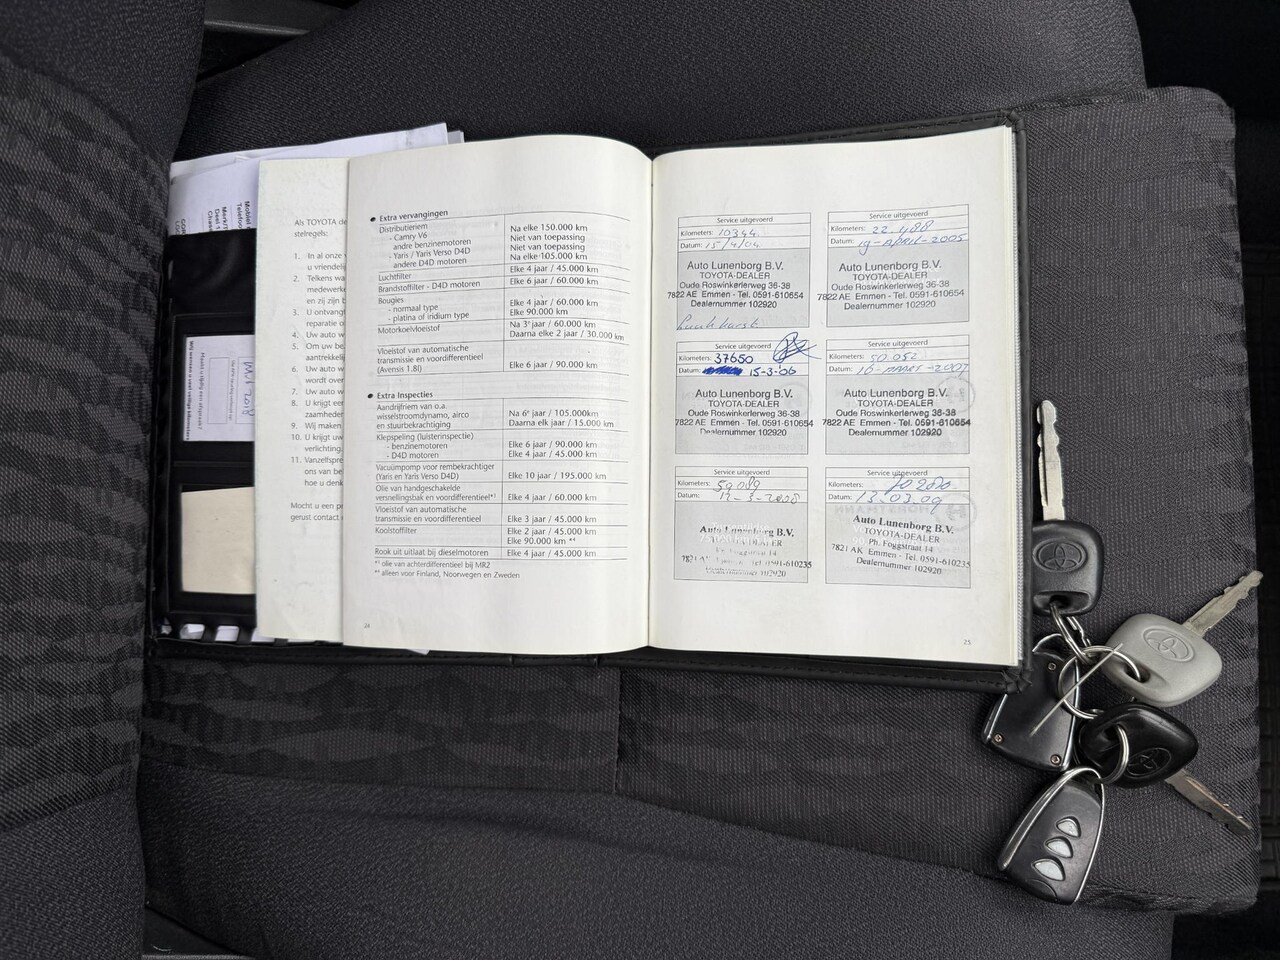 Als TOYOTA de
stelregels:
1. In al onze
u vriendelij
2. Telkens wa
medewerke
en zij zijn b
3. U ontvangt
reparatie o
4. Uw auto w
5. Om uw be
aantrekkelij
6. Uw auto w
wordt over
7. Uw auto w
8. U krijgt eer
zaamheder
9. Wij maken
10. U krijgt uw
verlichting.
11. Vanzelfspre
ons van be
hoe u denk
Mocht u een pr
gerust contact
Extra vervangingen
Distributieriem
- Camry V6 Na elke 150.000 km
andere benzinemotoren Niet van toepassing
- Yaris / Yaris Verso D4D Niet van toepassing
andere D4D motoren Na elke 105.000 km
Luchtfilter Elke 4 jaar / 45.000 km
Brandstoffilter - D4D motoren Elke 6 jaar / 60.000 km
Bougies
- normaal type Elke 4 jaar / 60.000 km
- platina of iridium type Elke 90.000 km
Motorkoelvloeistof Na 3e jaar / 60.000 km
Daarna elke 2 jaar / 30.000 km
Vloeistof van automatische
transmissie en voordifferentieel
(Avensis 1.8l) Elke 6 jaar / 90.000 km
Extra Inspecties
Aandrijfriem van o.a.
wisselstroomdynamo, airco Na 6e jaar / 105.000km
en stuurbekrachtiging Daarna elk jaar / 15.000 km
Klepspeling (luisterinspectie)
- benzinemotoren Elke 6 jaar / 90.000 km
- D4D motoren Elke 4 jaar / 45.000 km
Vacuümpomp voor rembekrachtiger
(Yaris en Yaris Verso D4D) Elke 10 jaar / 195.000 km
Olie van handgeschakelde
versnellingsbak en voordifferentieel*¹ Elke 4 jaar / 60.000 km
Vloeistof van automatische
transmissie en voordifferentieel Elke 3 jaar / 45.000 km
Koolstoffilter Elke 2 jaar / 45.000 km
Elke 90.000 km *²
Rook uit uitlaat bij dieselmotoren Elke 4 jaar / 45.000 km
*¹ olie van achterdifferentieel bij MR2
*² alleen voor Finland, Noorwegen en Zweden
24
Service uitgevoerd
Kilometers: 10344
Datum: 15/4/04
Auto Lunenborg B.V.
TOYOTA-DEALER
Oude Roswinkerlerweg 36-38
7822 AE Emmen - Tel. 0591-610654
Dealernummer 102920
Service uitgevoerd
Kilometers: 22.488
Datum: 19-APRIL-2005
Auto Lunenborg B.V.
TOYOTA-DEALER
Oude Roswinkerlerweg 36-38
7822 AE Emmen - Tel. 0591-610654
Dealernummer 102920
Service uitgevoerd
Kilometers: 37650
Datum: 15-3-06
Auto Lunenborg B.V.
TOYOTA-DEALER
Oude Roswinkerlerweg 36-38
7822 AE Emmen - Tel. 0591-610654
Dealernummer 102920
Service uitgevoerd
Kilometers: 50.052
Datum: 16-MAART-2007
Auto Lunenborg B.V.
TOYOTA-DEALER
Oude Roswinkerlerweg 36-38
7822 AE Emmen - Tel. 0591-610654
Dealernummer 102920
Service uitgevoerd
Kilometers: 59009
Datum: 12-3-2008
Auto Lunenborg B.V.
TOYOTA-DEALER
Ph. Foggstraat 14
7821 AK Emmen - Tel. 0591-610235
Dealernummer 102920
Service uitgevoerd
Kilometers: 70200
Datum: 13.03.09
Auto Lunenborg B.V.
TOYOTA-DEALER
Ph. Foggstraat 14
7821 AK Emmen - Tel. 0591-610235
Dealernummer 102920
25